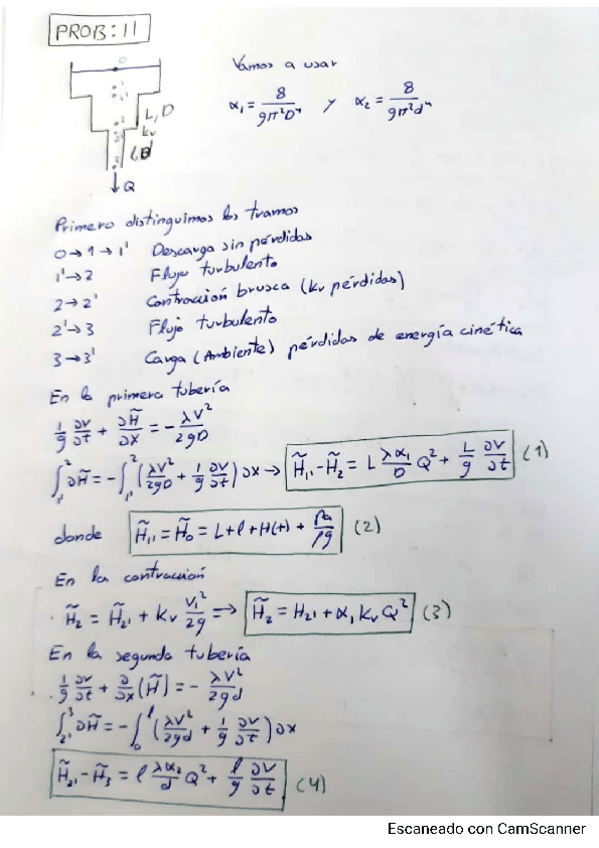 PROB: 11
0
1
1'
L, D
2
kv
2'
l, d
3
Q
Vamos a usar
α₁ = 8/(gπ²D⁴) y α₂ = 8/(gπ²d⁴)
Primero distinguimos los tramos
0→1→1' Descarga sin pérdidas
1'→2 Flujo turbulento
2→2' Contracción brusca (kv pérdidas)
2'→3 Flujo turbulento
3→3' Carga (Ambiente) pérdidas de energía cinética
En la primera tubería
1/g ∂v/∂t + ∂H̃/∂x = - λv²/2gD
∫₁'² ∂H̃ = -∫₁'² (λv²/2gD + 1/g ∂v/∂t) ∂x → H̃₁' - H̃₂ = L λα₁/D Q² + L/g ∂v/∂t (1)
donde H̃₁' = H̃₀ = L + l + H(t) + Pa/ρg (2)
En la contracción
H̃₂ = H̃₂' + Kv V₁²/2g ⟹ H̃₂ = H₂' + α₁ Kv Q² (3)
En la segunda tubería
1/g ∂v/∂t + ∂/∂x (H̃) = - λv²/2gd
∫₂'³ ∂H̃ = -∫₀ˡ (λv²/2gd + 1/g ∂v/∂t) ∂x
H̃₂' - H̃₃ = l λα₂/d Q² + l/g ∂v/∂t (4)
Escaneado con CamScanner